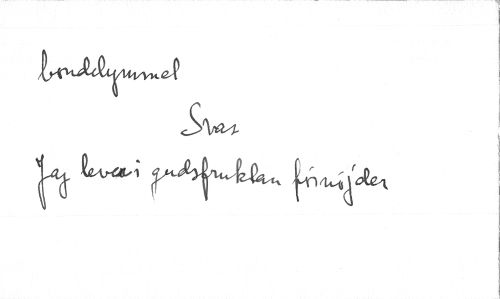 bonddymmel
Svar
Jag lever i gudsfruktan förnöjder